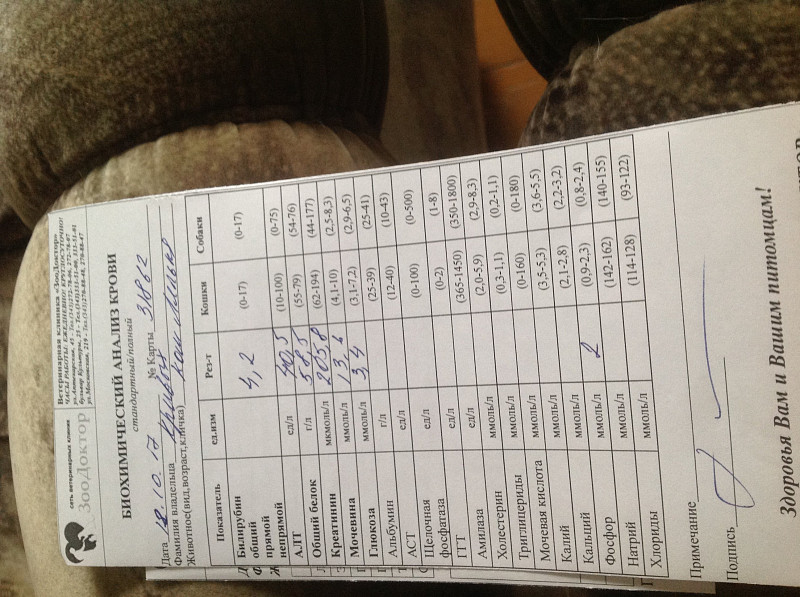 сеть ветеринарных клиник
ЗооДоктор
Ветеринарная клиника «ЗооДоктор»
ЧАСЫ РАБОТЫ: ЕЖЕДНЕВНО! КРУГЛОСУТОЧНО!
БИОХИМИЧЕСКИЙ АНАЛИЗ КРОВИ
стандартный/полный
Дата 10. 17 № Карты 31862
Фамилия владельца
Животное(вид,возраст,кличка)
Показатель ед.изм Рез-т Кошки Собаки
Билирубин
общий 4,2 (0-17) (0-17)
прямой
непрямой
АЛТ ед/л (10-100) (0-75)
Общий белок г/л 58,5 (55-79) (54-76)
Креатинин мкмоль/л 205,8 (62-194) (44-177)
Мочевина ммоль/л 13,6 (4,1-10) (2,5-8,3)
Глюкоза ммоль/л 3,4 (3,1-7,2) (2,9-6,5)
Альбумин г/л (25-39) (25-41)
АСТ ед/л (12-40) (10-43)
Щелочная
фосфатаза ед/л (0-100) (0-500)
ГГТ ед/л (0-2) (1-8)
Амилаза ед/л (365-1450) (350-1800)
Холестерин ммоль/л (2,0-5,9) (2,9-8,3)
Триглицериды ммоль/л (0,3-1,1) (0,2-1,1)
Мочевая кислота ммоль/л (0-160) (0-180)
Калий ммоль/л (3,5-5,3) (3,6-5,5)
Кальций ммоль/л (2,1-2,8) (2,2-3,2)
Фосфор ммоль/л 2 (0,9-2,3) (0,8-2,4)
Натрий ммоль/л (142-162) (140-155)
Хлориды ммоль/л (114-128) (93-122)
Примечание
Подпись
Здоровья Вам и Вашим питомцам!